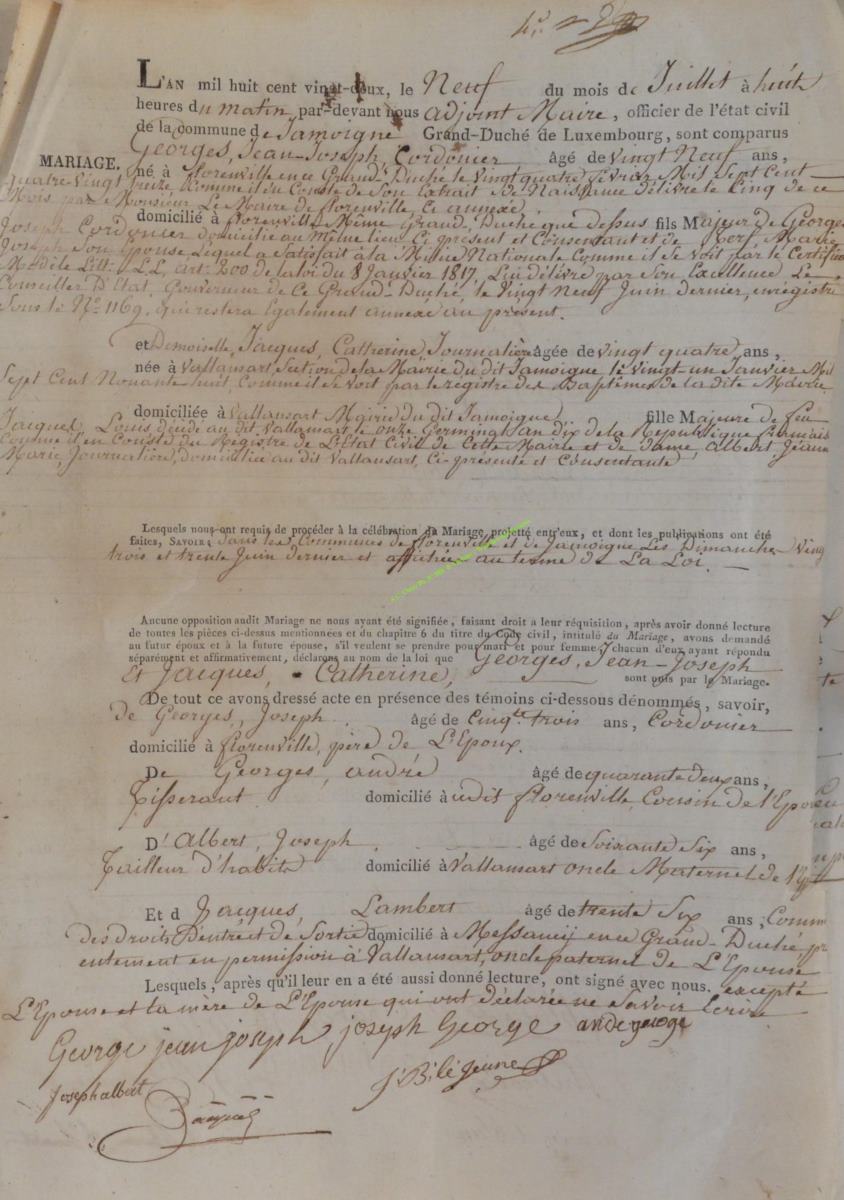 L'AN mil huit cent vingt-deux, le Neuf du mois de Juillet à huit
heures du matin, par-devant nous adjoint Maire, officier de l'état civil
de la commune de Jamoigne Grand-Duché de Luxembourg, sont comparus
Georges, Jean-Joseph, Cordonier âgé de vingt Neuf ans,
MARIAGE.
né à florenville en ce Grand Duché le vingt quatre Mil Sept Cent
quatre-vingt treize, Comme il Conste de Son Extrait de Naissance délivré le Cinq de ce
Mois par Monsieur Le Maire de florenville, Ci annexé.
domicilié à florenville Même Grand Duché que dessus fils Majeur de Georges
Joseph Cordonier domicilié au Même lieu Ci présent et Consentant et de Marie
Joseph Son épouse Lequel a Satisfait à la Milice Nationale Comme il Se Voit par le Certificat
Modèle Litt. LL, art. 200 de la loi du 8 Janvier 1817, Lui délivré par Son Excellence Le
Conseiller D'Etat, Gouverneur de Ce Grand-Duché, le Vingt Neuf Juin dernier, enregistré
Sous le No. 1169, qui restera Egalement annexé au présent.
et Demoiselle, Jacques, Catherine Journalière âgée de vingt quatre ans,
née à Vallansart, Section de la Mairie du dit Jamoigne le vingt-un Janvier Mil
Sept Cent Nonante huit, Comme il Se Voit par le registre des Baptêmes de la dite Mairie
domiciliée à Vallansart Mairie du dit Jamoigne fille Majeure de feu
Jacques, Louis décédé au dit Vallansart le onze Germinal an dix de la République française
Comme il en Conste du Registre de L'Etat Civil de Cette Mairie et de dame Albert, Jeanne
Marie, Journalière, domiciliée au dit Vallansart, Ci-présente et Consentante
Lesquels nous ont requis de procéder à la célébration du Mariage projetté entr'eux, et dont les publications ont été
faites, SAVOIR: dans les Communes de florenville et de Jamoigne Les Dimanches Ving
trois et trente Juin dernier et affichées au terme de La Loi.
Aucune opposition audit Mariage ne nous ayant été signifiée, faisant droit à leur réquisition, après avoir donné lecture
de toutes les pièces ci-dessus mentionnées et du chapitre 6 du titre du Code civil, intitulé du Mariage, avons demandé
au futur époux et à la future épouse, s'il veulent se prendre pour mari et pour femme, chacun d'eux ayant répondu
séparément et affirmativement, déclarons au nom de la loi que Georges, Jean-Joseph
Et Jacques, Catherine, sont unis par le Mariage.
De tout ce avons dressé acte en présence des témoins ci-dessous dénommés, savoir,
de Georges, Joseph âgé de Cinqte. trois ans, Cordonier
domicilié à florenville, père de L'Epoux.
De Georges, andré âgé de quarante deux ans,
Tisserant domicilié à udit florenville, Cousin de l'Epoux
D'Albert, Joseph âgé de Soixante Six ans,
Tailleur d'habits domicilié à Vallansart oncle Maternel de l'Ep
Et d Jacques, Lambert âgé de trente Six ans, Comm
des Droits D'entrée et de Sortie domicilié à Messancy en ce Grand-Duché pr
entement en permission à Vallansart, oncle paternel de L'Epouse
Lesquels, après qu'il leur en a été aussi donné lecture, ont signé avec nous, excepté
L'Epouse et la mère de L'Epouse qui ont déclarée ne Savoir Ecrire
George jean joseph joseph George ande geroge
Joseph albert
Jacques